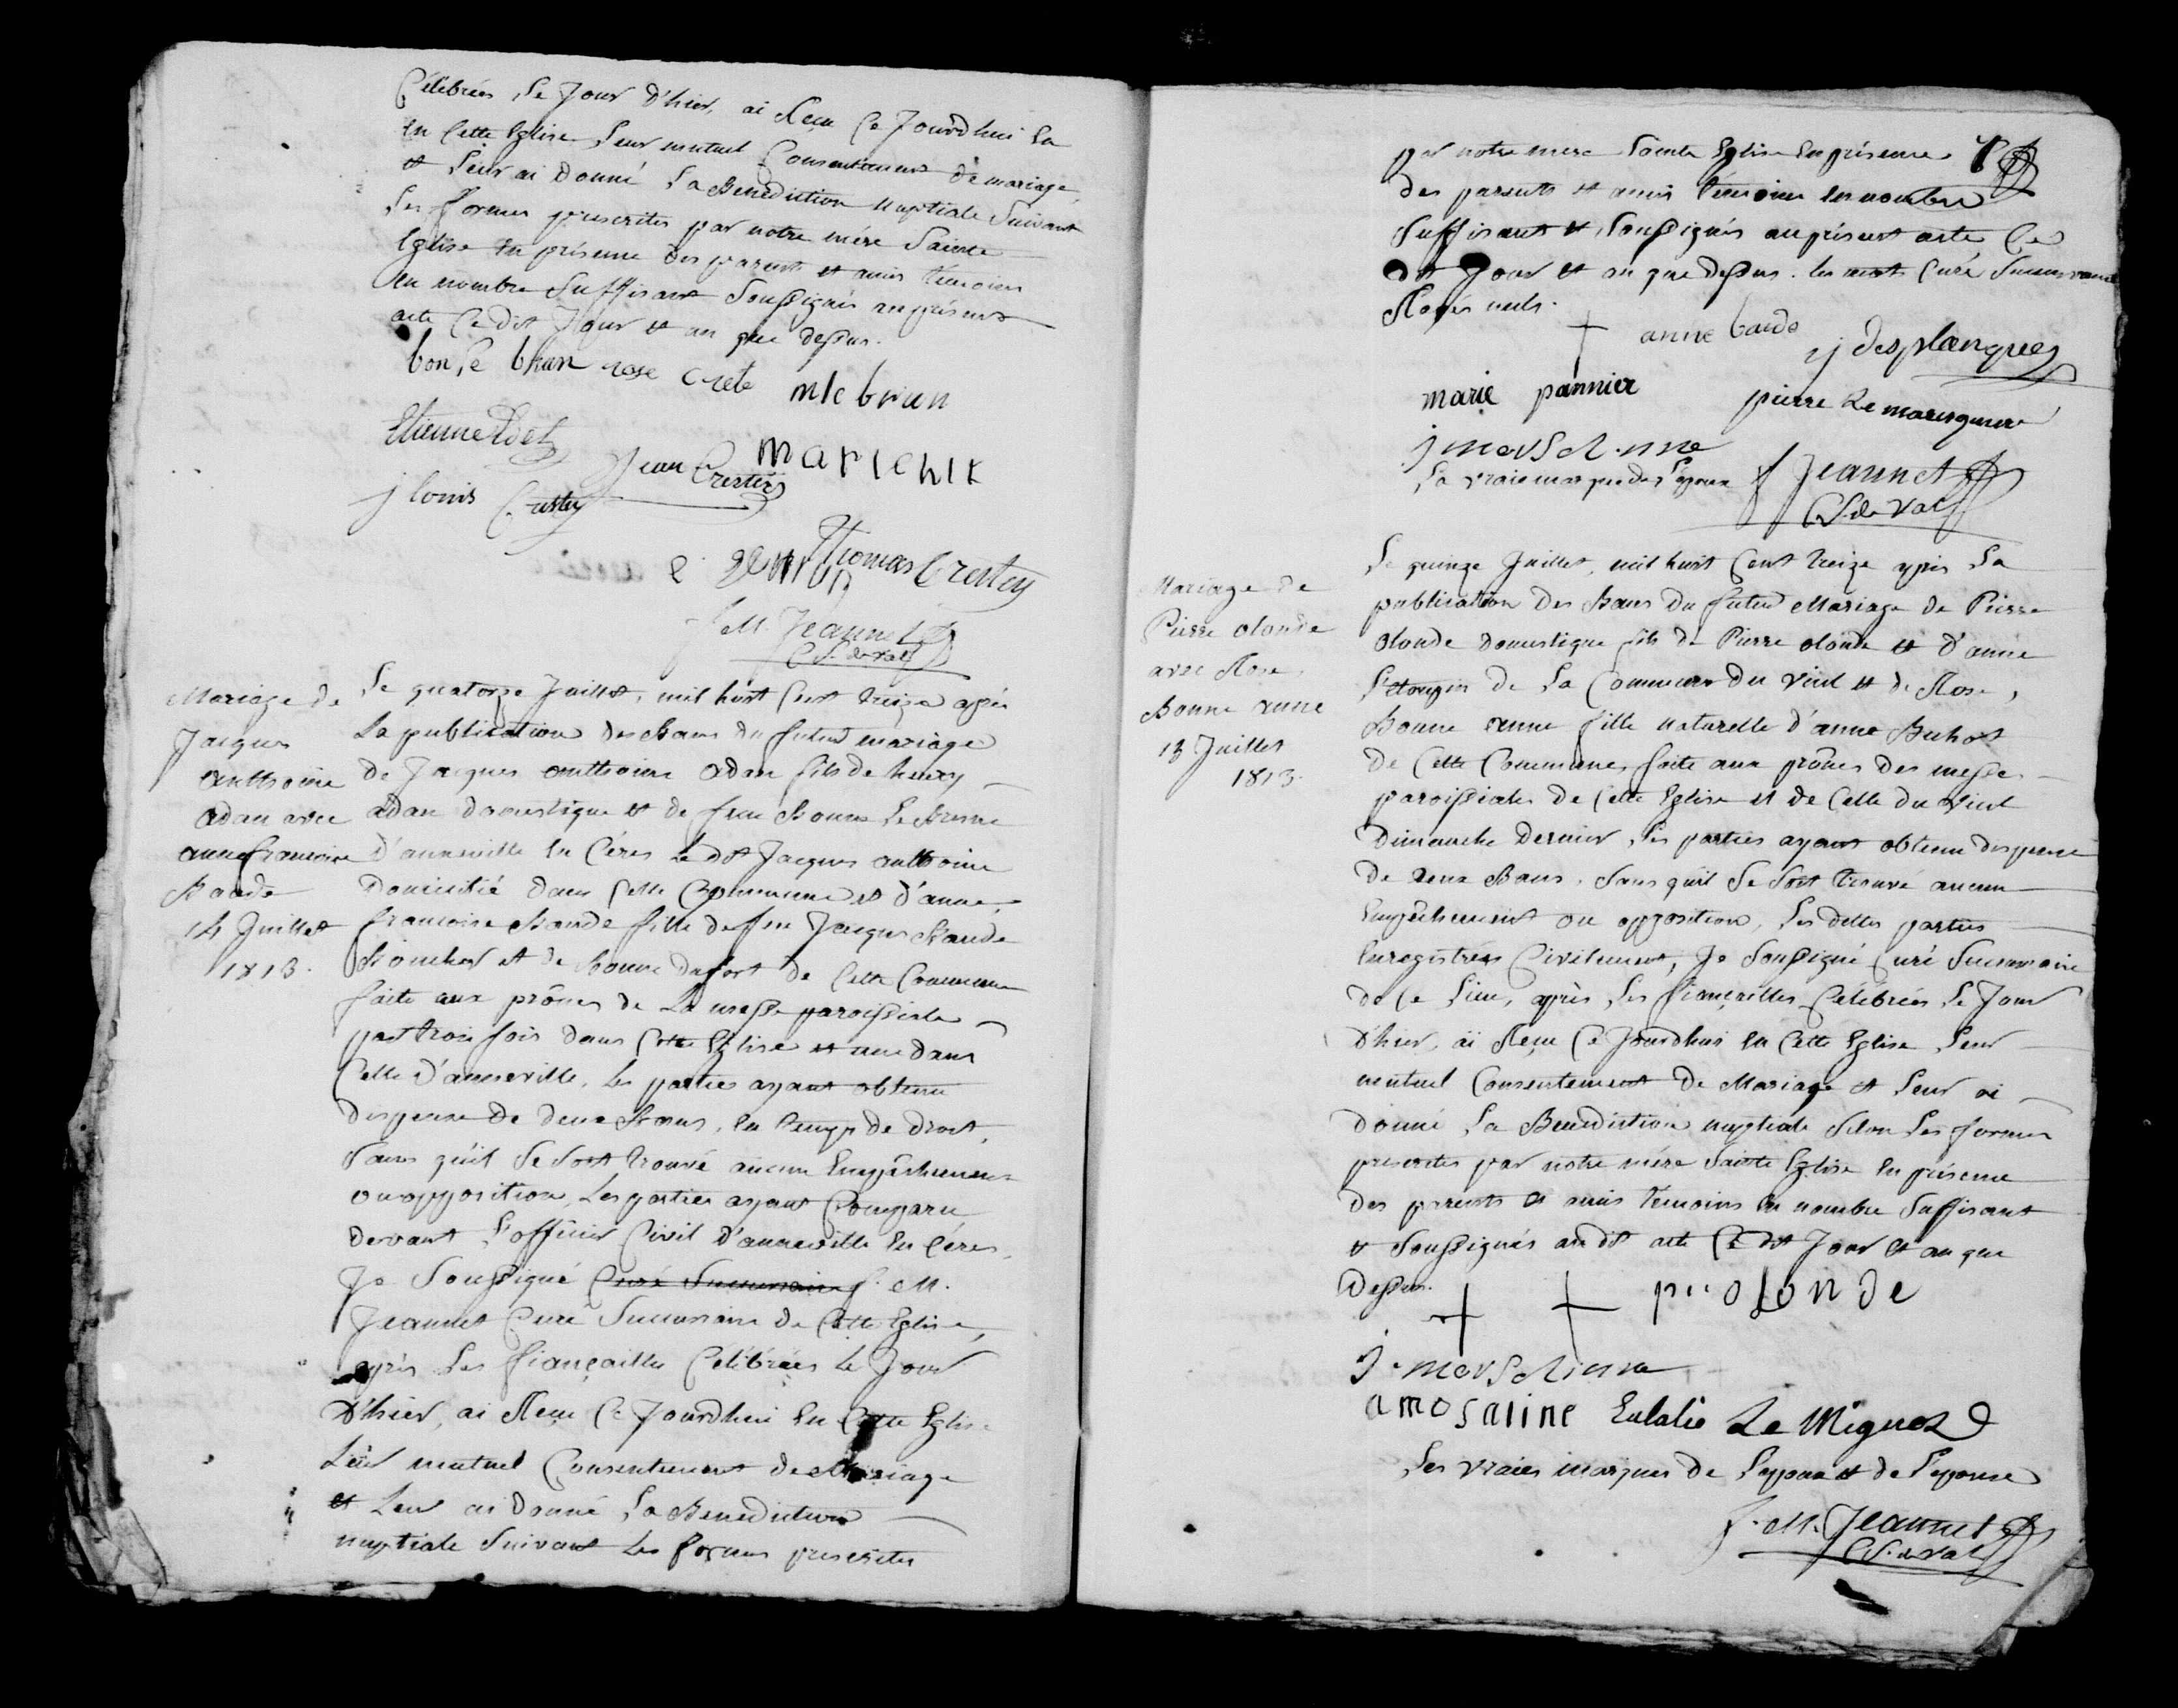 Célébrées, le Jour d'hier, ai Reçu Ce Jourdhui La
en Cette Eglise Leur mutuel Consentement de mariage
et Leur ai Donné La Benediction nuptiale Suivant
Les formes prescrites par notre mére Sainte
Eglise en présence des parents et amis témoins
en nombre Suffisant Soussignés au présent
acte Ce dit Jour et an que dessus.
bon le bhun rose crete m le brun
Etienne
Jean Crestey
j louis Crestey
Thomas Crestey
f. M. Jeannet
C. S. de val
Mariage de
Jacques
anthoine
adan avec
anne francoise
Baude
14 Juillet
1813.
Le quatorze Juillet, mil huit Cent treize après
La publication des Bans du futur mariage
de Jacques anthoine adan fils de henry
adan domestique et de feue Bonne
D'anneville en Céres Le dit Jacques anthoine
Domicilié dans Cette Commune et d'anne
francoise Baude fille de feu Jacques Baude
et de Bonne dufort de Cette Commune
faite aux prônes de La messe paroissiale
par trois fois dans Cette Eglise et une dans
Celle D'anneville, Les parties ayant obtenu
dispense de deux Bans, en temps de droit,
Sans qu'il Se Soit trouvé aucun Empêchement
ou opposition, Les parties ayant Comparu
devant L'officier Civil D'anneville en Céres,
Je Soussigné Curé Succursaire f. M.
Jeannet Curé Succursaire de Cette Eglise,
après Les fiançailles Célébrées Le Jour
D'hier, ai Reçu Ce Jourdhui en Cette Eglise
Leur mutuel Consentement de Mariage
et Leur ai Donné La Benediction
nuptiale Suivant Les formes prescrites
par notre mere Sainte Eglise en présence
des parents et amis témoins en nombre
Suffisant et Soussignés au présent acte Ce
dit Jour et an que dessus. Les mots Curé Succursaire
Rayés nuls.
anne baude
j desplanques
marie pannier
pierre Le maresquier
La vraie marque de L'époux
f M Jeannet
C S de val
Mariage de
Pierre olonde
avec Rose
Bonne anne
15 Juillet
1813.
Le quinze Juillet, mil huit Cent treize après La
publication des Bans du futur Mariage de Pierre
olonde domestique fils de Pierre olonde et d'anne
Létoupin de La Commune du Vicel et de Rose,
Bonne anne fille naturelle d'anne Buhot
de Cette Commune, faite aux prônes des messes
paroissiales de Cette Eglise et de Celle du Vicel
Dimanche dernier, Les parties ayant obtenu dispense
de deux Bans, Sans qu'il Se Soit trouvé aucun
Empêchement ou opposition, Les dittes parties
Enregistrées Civilement, Je Soussigné Curé Succursaire
de Ce Lieu, après Les fiançailles Célébrées Le Jour
D'hier, ai Reçu Ce Jourdhui en Cette Eglise Leur
mutuel Consentement de Mariage et Leur ai
Donné La Benediction nuptiale Selon Les formes
prescrites par notre mére Sainte Eglise en présence
des parents et amis témoins en nombre Suffisant
et Soussignés au dit acte Ce dit Jour et an que
dessus.
olonde
amosaline Eulalie Le Mignot
Les vraies marques de L'epoux et de L'epouse
f. M. Jeannet
C S. de val